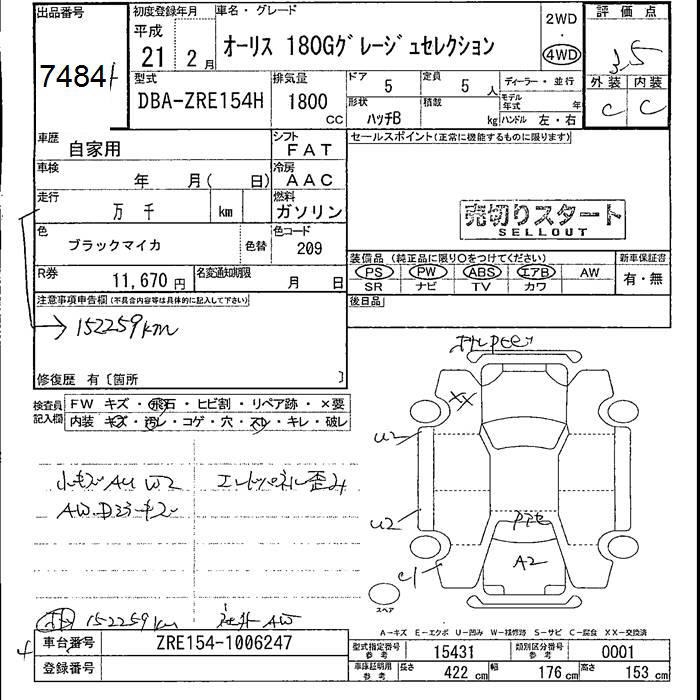 出品番号
7484
初度登録年月
平成
21 2月
車名・グレード
オーリス 180Gグレージュセレクション
2WD
・
4WD
評価点
3.5
外装 内装
C C
型式
DBA-ZRE154H
排気量
1800
CC
ドア
5
定員
5 人
ディーラー・並行
形状
ハッチB
積載
kg
モデル年式 年
ハンドル 左・右
車歴
自家用
シフト
FAT
セールスポイント(正常に機能するものに限ります)
車検
年 月( 日)
冷房
AAC
走行
万 千 km
燃料
ガソリン
売切りスタート
SELLOUT
色
ブラックマイカ
色替
色コード
209
装備品(純正品に限り○をつけてください)
新車保証書
PS PW ABS エアB AW
有・無
SR ナビ TV カワ
R券
11,670 円
名変通知期限
月 日
後日品
注意事項申告欄(不具合内容等は具体的に記入して下さい)
→152259km
修復歴 有〔箇所 〕
検査員記入欄
FW キズ・飛石・ヒビ割・リペア跡・×要
内装 キズ・汚レ・コゲ・穴・スレ・キレ・破レ
XX
U2
U2
C1
PPE
A2
スペア
小キズAU W2
エンドパネル歪み
152259km
社外AW
A-キズ E-エクボ U-凹み W-補修跡 S-サビ C-腐食 XX-交換済
車台番号
ZRE154-1006247
型式指定番号 参考
15431
類別区分番号 参考
0001
登録番号
車庫証明用 参考
長さ 422 cm 幅 176 cm 高さ 153 cm